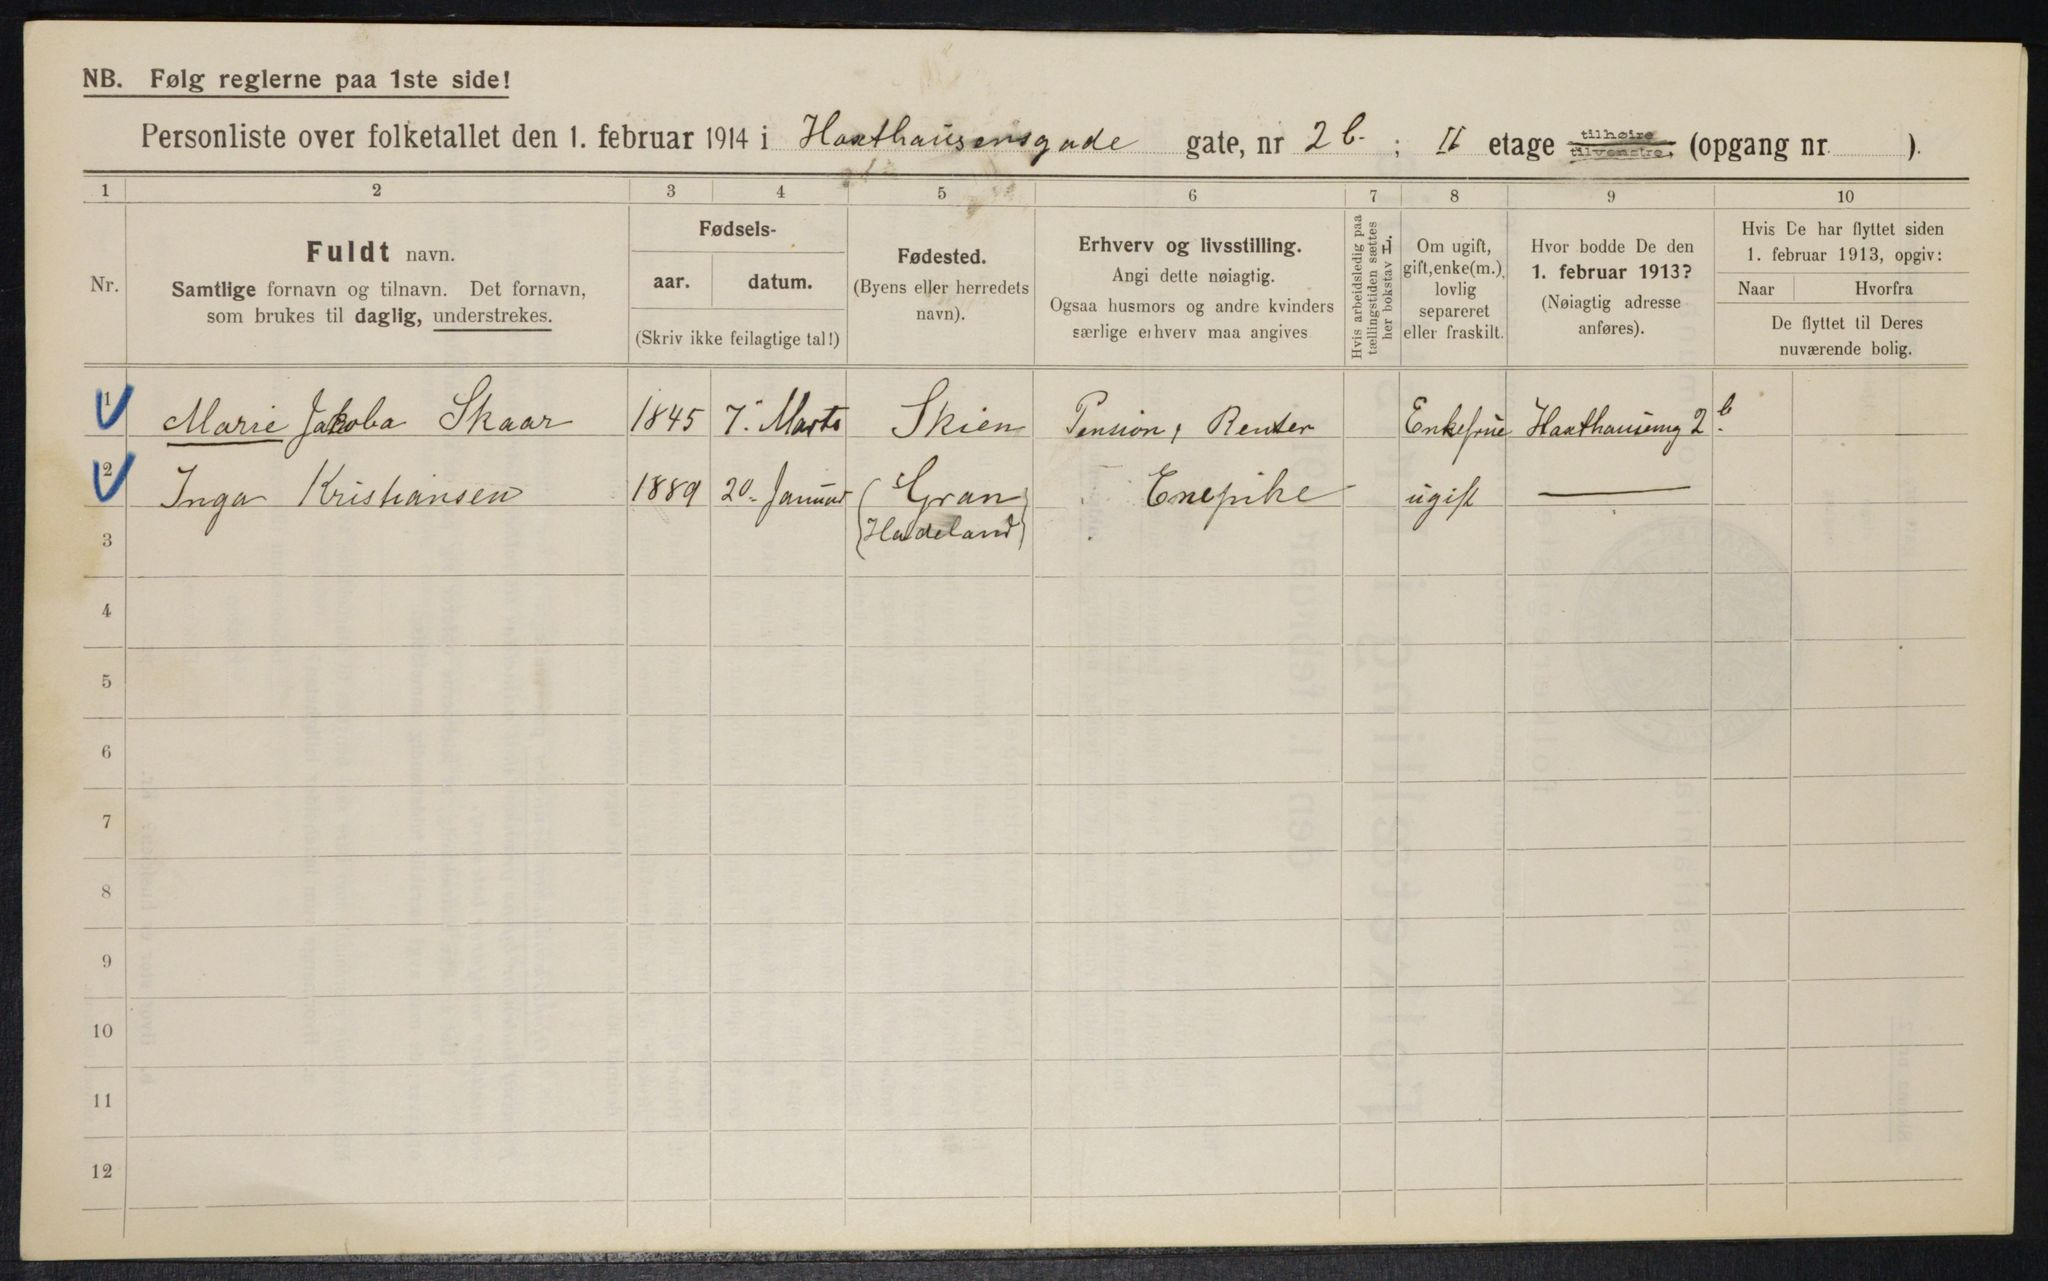 NB. Følg reglerne paa 1ste side!
Personliste over folketallet den 1. februar 1914 i Haxthausensgade gate, nr 2 b. ; II etage tilhøire tilvenstre, (opgang nr. ).
1 2 3 4 5 6 7 8 9 10
Nr.
Fuldt navn.
Samtlige fornavn og tilnavn. Det fornavn,
som brukes til daglig, understrekes.
Fødsels-
aar. datum.
(Skriv ikke feilagtige tal!)
Fødested.
(Byens eller herredets
navn).
Erhverv og livsstilling.
Angi dette nøiagtig.
Ogsaa husmors og andre kvinders
særlige erhverv maa angives
Hvis arbeidsledig paa
tællingstiden sættes
her bokstav L.
Om ugift,
gift, enke(m.),
lovlig
separeret
eller fraskilt.
Hvor bodde De den
1. februar 1913?
(Nøiagtig adresse
anføres).
Hvis De har flyttet siden
1. februar 1913, opgiv:
Naar Hvorfra
De flyttet til Deres
nuværende bolig.
1 Marie Jakoba Skaar 1845 7. Marts Skien Pension, Renter Enkefrue Haxthauseng 2 b.
2 Inga Kristiansen 1889 20. Januar (Gran) Enepike ugift —
3 (Hadeland)
4
5
6
7
8
9
10
11
12